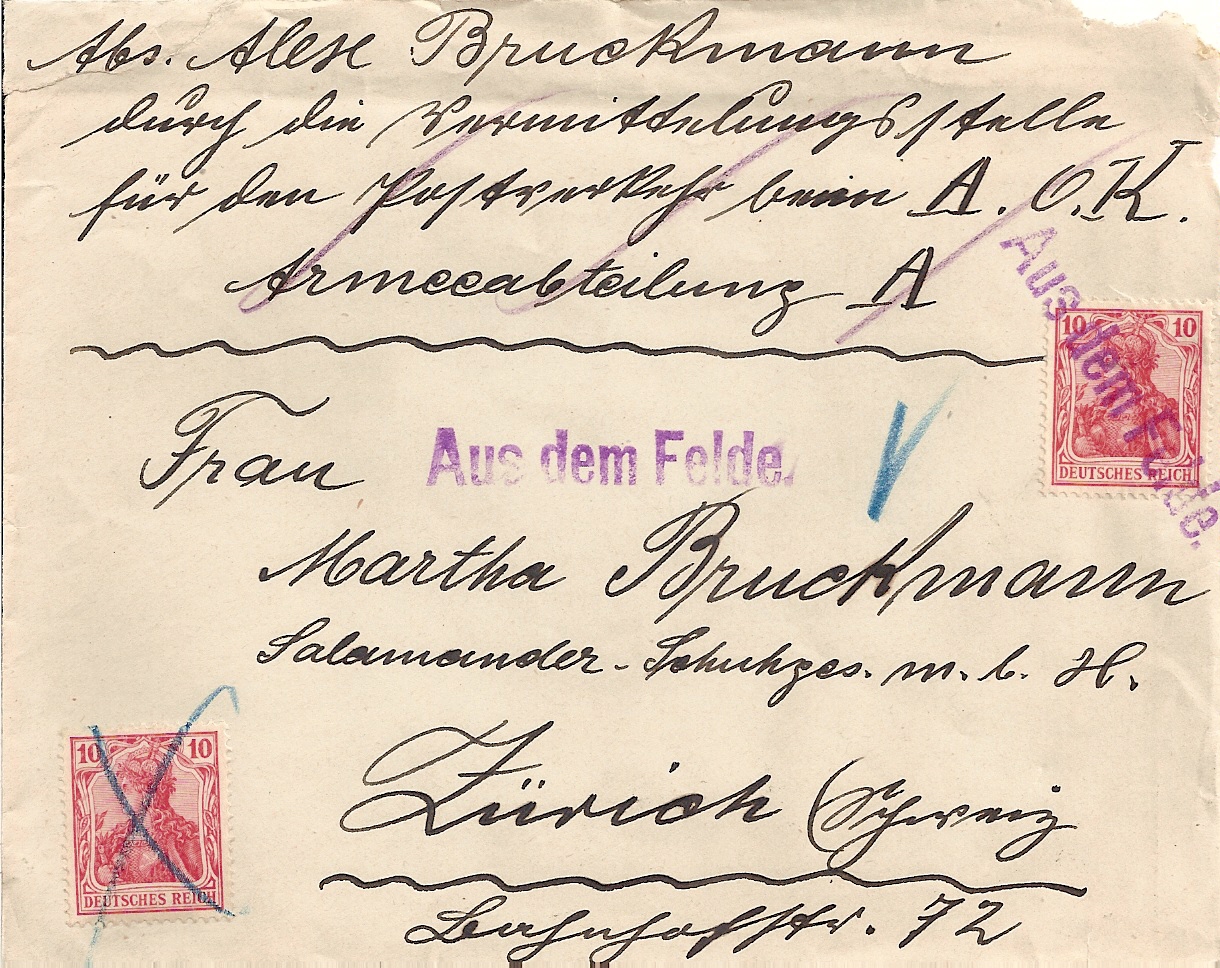 Abs. Alex Bruckmann
durch die Vermittelungsstelle
für den Postverkehr beim A.O.K.
Armeeabteilung A
Aus dem Felde.
10 10
DEUTSCHES REICH
Frau
Aus dem Felde.
Martha Bruckmann
Salamander-Schuhges. m. b. H.
10 10
DEUTSCHES REICH
Zürich (Schweiz
Bahnhofstr. 72